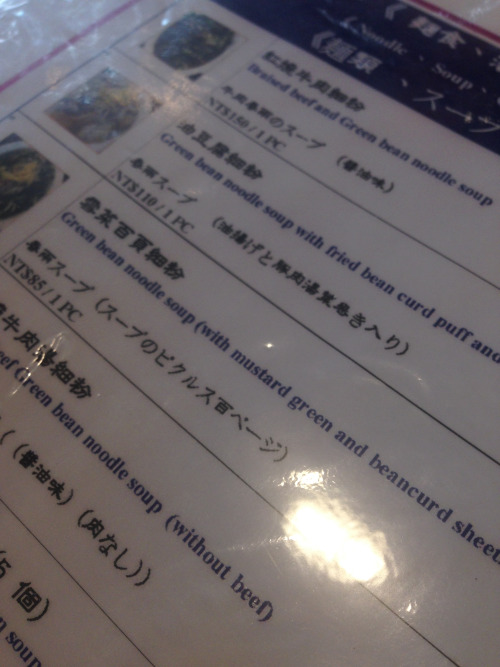 《 麵食、湯
Noodle、Soup、
《麺類、スープ
紅燒牛肉細粉
Braised beef and Green bean noodle soup
牛肉春雨のスープ (醤油味)
NT$150 / 1 PC
油豆腐細粉
Green bean noodle soup with fried bean curd puff and
春雨スープ (油揚げと豚肉湯葉巻き入り)
NT$110 / 1 PC
雪菜百頁細粉
Green bean noodle soup (with mustard green and beancurd sheet
春雨スープ (スープのピクルス百ページ)
NT$85 / 1 PC
牛肉湯細粉
Green bean noodle soup (without beef)
(醤油味) (肉なし))
5 個)
soup